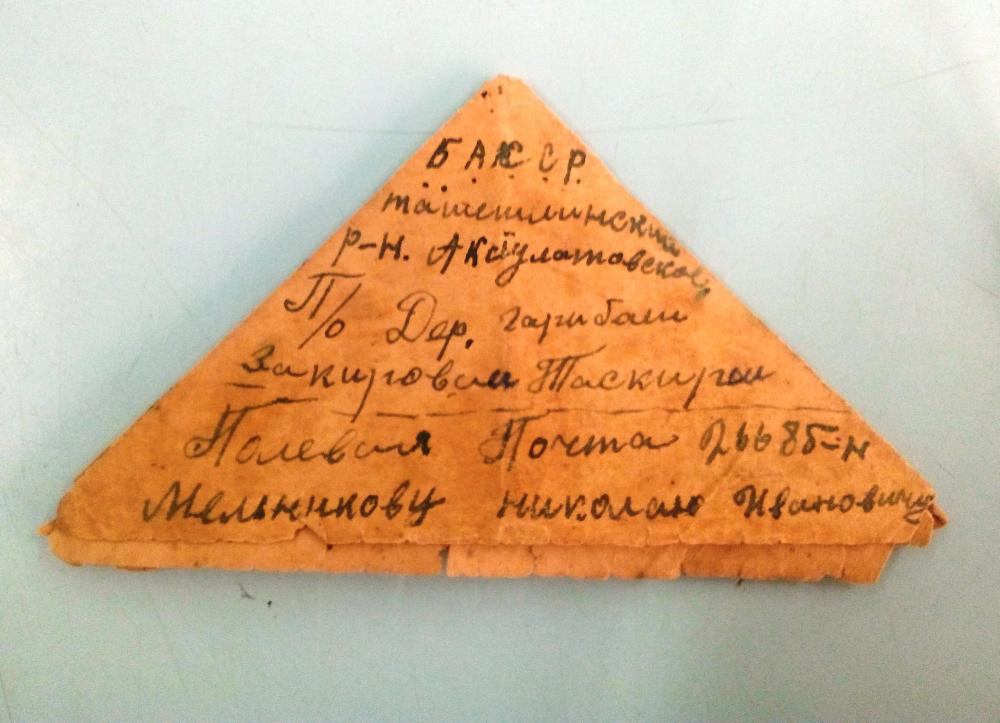 БАССР
ташешлинский
р-н. Акбулатовской
П/о Дер. гарибаш
Закировой
Полевая Почта 26685-н
Мельникову николаю Ивановичу